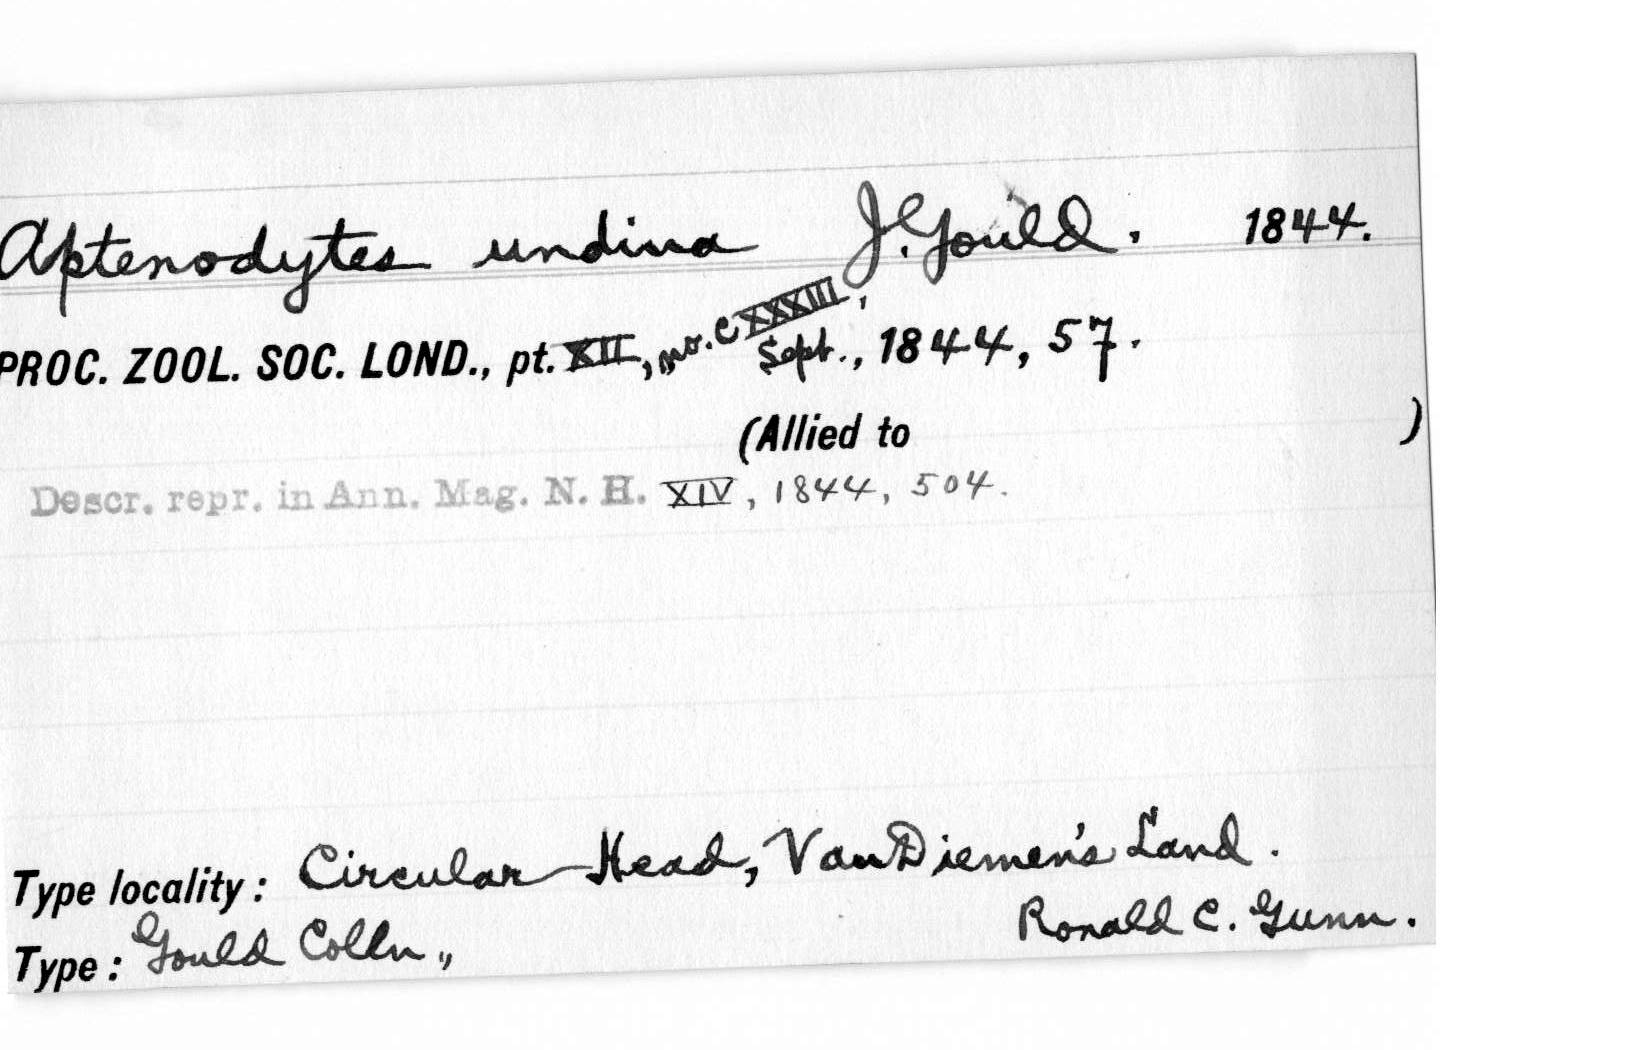 Aptenodytes undina J. Gould. 1844.
PROC. ZOOL. SOC. LOND., pt. XII, no. CXXXIII, Sept., 1844, 57.
(Allied to )
Descr. repr. in Ann. Mag. N. H. XIV, 1844, 504.
Type locality: Circular Head, Van Diemen's Land.
Ronald C. Gunn.
Type: Gould Colln.,